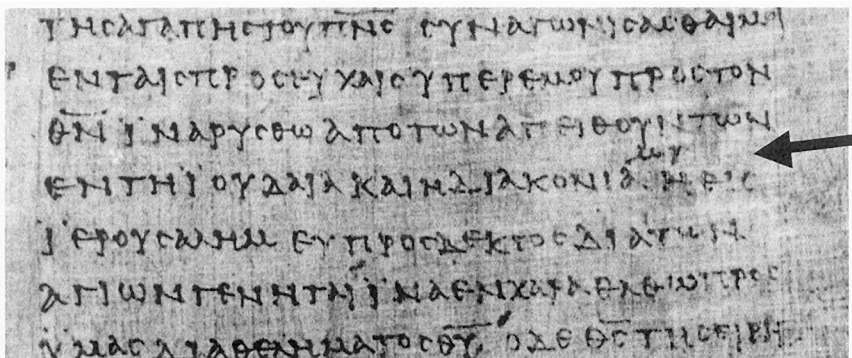 ΤΗϹΑΓΑΠΗϹΤΟΥΠ̅Ν̅Ϲ̅ ϹΥΝΑΓΩΝΙϹΑϹΘΑΙΜΟΙ
ΕΝΤΑΙϹΠΡΟϹΕΥΧΑΙϹΥΠΕΡΕΜΟΥΠΡΟϹΤΟΝ
Θ̅Ν̅ ΪΝΑΡΥϹΘΩΑΠΟΤΩΝΑΠΕΙΘΟΥΝΤΩΝ
ΜΟΥ
ΕΝΤΗΪΟΥΔΑΙΑΚΑΙΗΔΙΑΚΟΝΙΑΗΕΙϹ
ΪΕΡΟΥϹΑΛΗΜ ΕΥΠΡΟϹΔΕΚΤΟϹΔΙΑΤΩΝ
ΑΓΙΩΝΓΕΝΗΤΑΙΪΝΑΕΝΧΑΡΑΕΛΘΩΠΡΟϹ
ΥΜΑϹΔΙΑΘΕΛΗΜΑΤΟϹΘ̅Υ̅ ΟΔΕΘ̅Ϲ̅ΤΗϹΕΙΡΗ